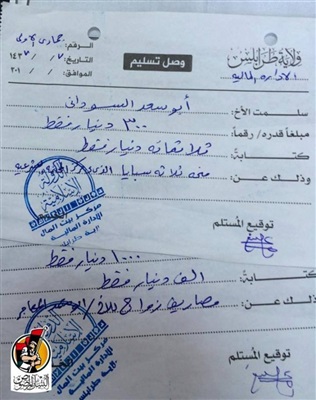 ولاية طرابلس
الإدارة المالية
وصل تسليم
الرقم: جمادى الأولى
التاريخ: / / ١٤٣٧
الموافق: / / ٢٠١
سلمت الأخ: أبو سعد السوداني
مبلغاً قدره/ رقماً: ٣٠٠ دينار فقط
كتابة: ثلاثمائة دينار فقط
وذلك عن: ثلاثة سبايا
توقيع المستلم
الدولة الإسلامية
مركز بيت المال
الإدارة المالية
ولاية طرابلس
١٠٠٠ دينار فقط
كتابة: ألف دينار فقط
ذلك عن: مصاريف زواج للأخ/
توقيع المستلم
مركز بيت المال
الإدارة المالية
ولاية طرابلس